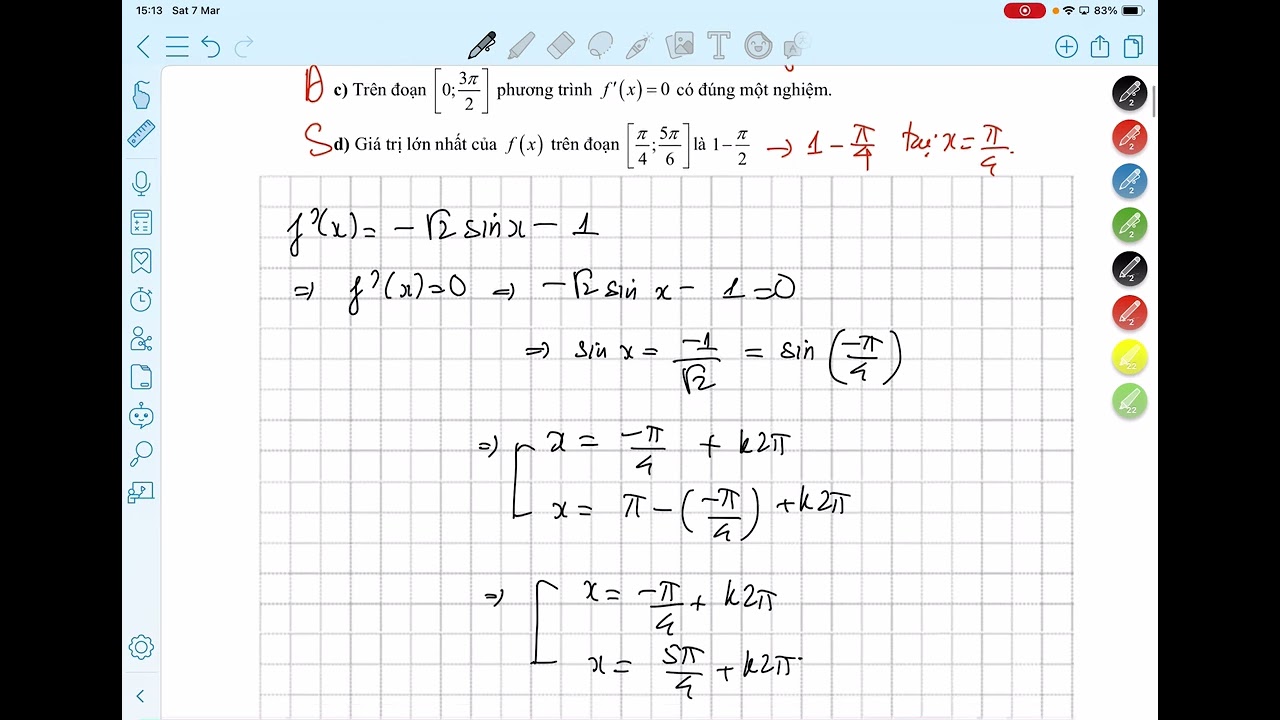 15:13 Sat 7 Mar 83%
Đ c) Trên đoạn [0; 3π/2] phương trình f'(x) = 0 có đúng một nghiệm.
S d) Giá trị lớn nhất của f(x) trên đoạn [π/4; 5π/6] là 1 − π/2 → 1 − π/4 tại x = π/4.
f'(x) = −√2 sin x − 1
⇒ f'(x) = 0 ⇒ −√2 sin x − 1 = 0
⇒ sin x = −1/√2 = sin (−π/4)
⇒ [ x = −π/4 + k2π
x = π − (−π/4) + k2π
⇒ [ x = −π/4 + k2π
x = 5π/4 + k2π
2
2
2
2
2
2
22
22